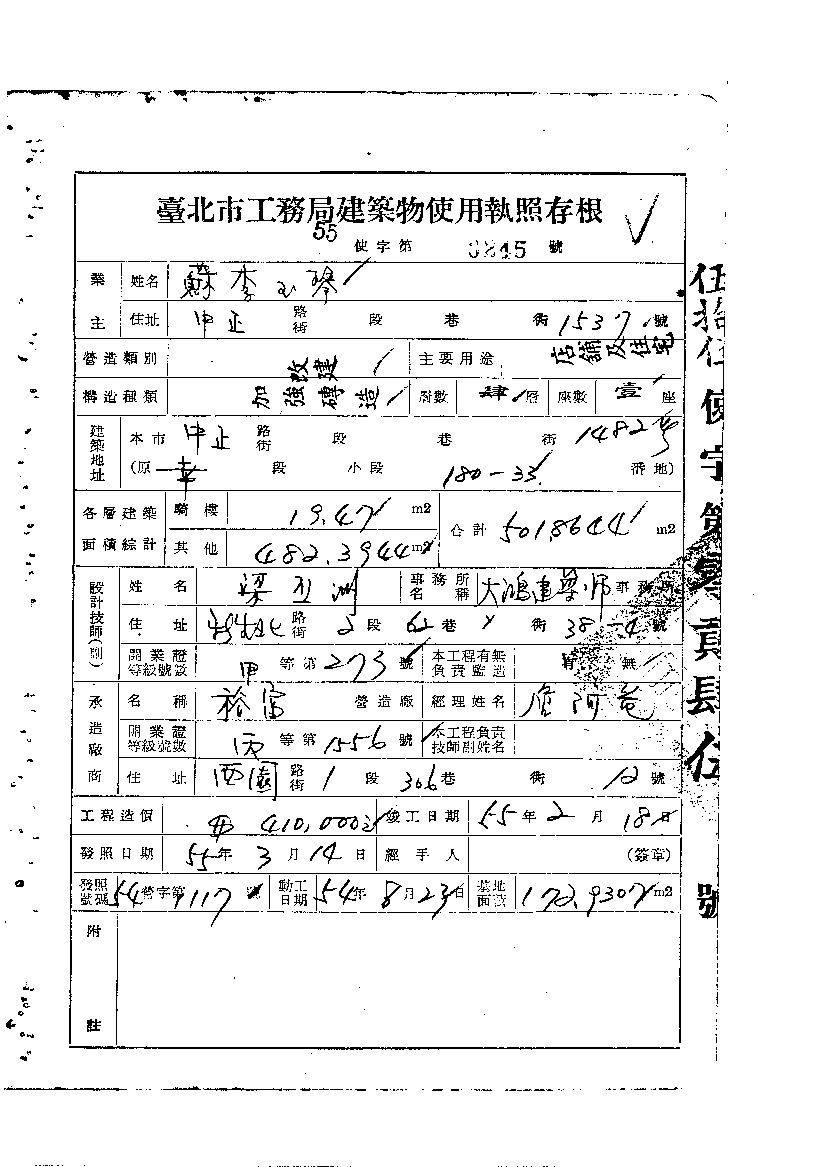 臺北市工務局建築物使用執照存根
55 使字第 0245 號
業主 姓名 蘇李玉琴
住址 中正 路街 段 巷 街 1537 號
營造類別 改建 主要用途 店舖及住宅
構造種類 加強磚造 層數 肆 層 座數 壹 座
建築地址 本市 中正 路街 段 巷 街 1482號
(原 幸 段 小段 180-33 番地)
各層建築面積綜計 騎樓 19.47 m2 合計 501.8644 m2
其他 482.3944 m2
設計技師(副) 姓名 梁 洲 事務所名稱 大鴻建築師 事務所
住址 路街 2 段 62 巷 街 38-4 號
開業證等級號數 甲 等第 273 號 本工程有無負責監造 有 無
承造廠商 名稱 裕富 營造廠 經理姓名 詹阿
開業證等級號數 丙 等第 1556 號 本工程負責技師副姓名
住址 西園 路街 1 段 306 巷 街 12 號
工程造價 410,000 竣工日期 55 年 2 月 18 日
發照日期 55 年 3 月 14 日 經手人 (簽章)
發照號碼 54 營字第 1117 號 動工日期 54 年 8 月 23 日 基地面積 172.9307 m2
附註
伍拾伍使字第零貳肆伍號